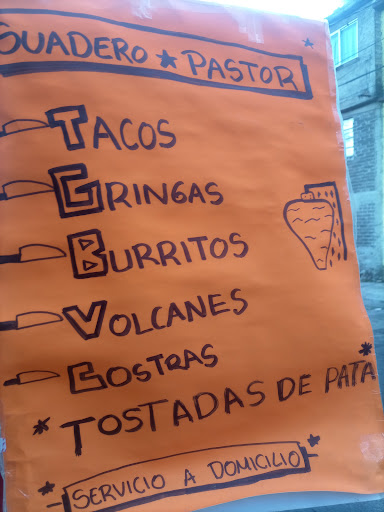 GUADERO ★ PASTOR
TACOS
GRINGAS
BURRITOS
VOLCANES
COSTRAS
* TOSTADAS DE PATA *
SERVICIO A DOMICILIO